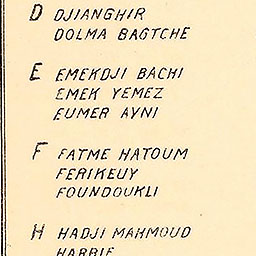 D DJIANGHIR
DOLMA BAGTCHE
E EMEKDJI BACHI
EMEK YEMEZ
EUMER AYNI
F FATME HATOUM
FERIKEUY
FOUNDOUKLI
H HADJI MAHMOUD
HARBIE